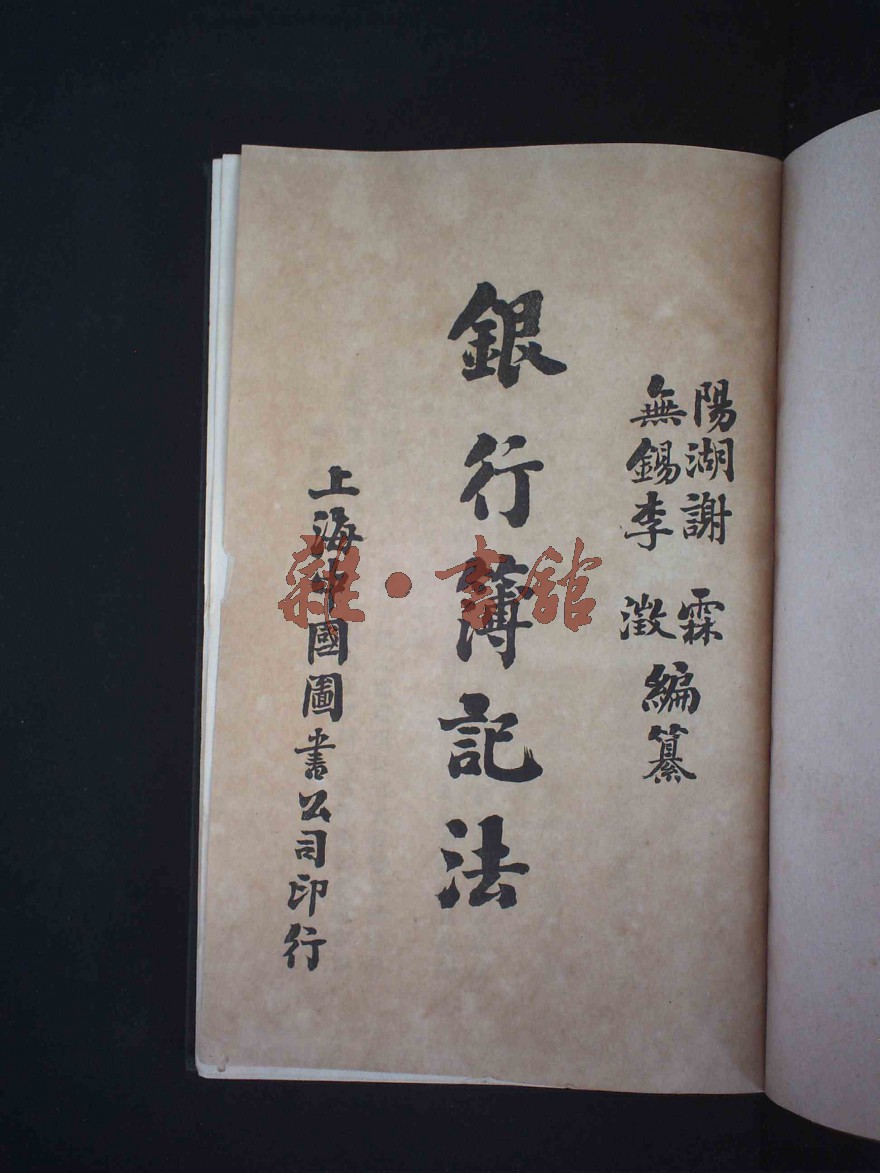 陽湖謝霖
無錫李澂
編纂
銀行簿記法
上海中國圖書公司印行
雜·書舘